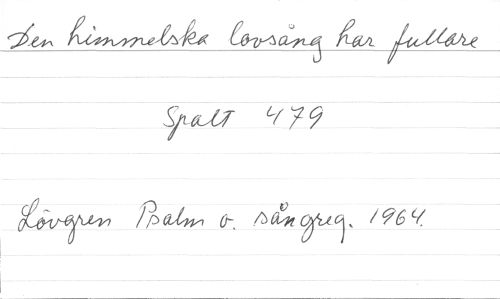 Den himmelska lovsång har fullare
Spalt 479
Lövgren Psalm o. sångreg. 1964.